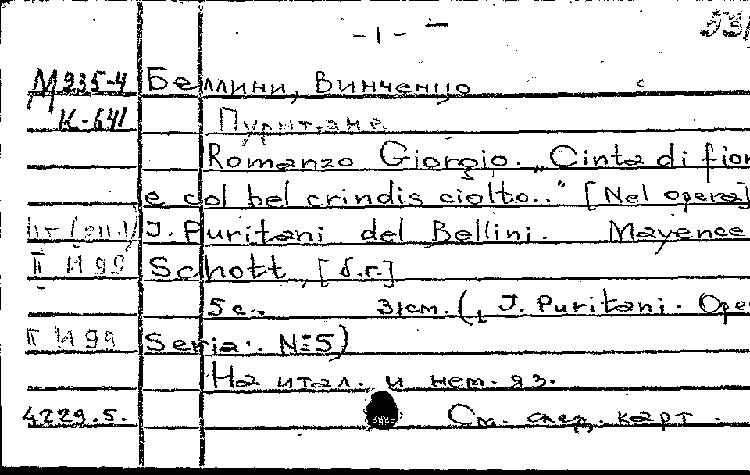 - 1 -
М 235-4 Беллини, Винченцо
К-641 Пуритане
Romanzo Giorgio. „Cinta di fior
e col bel crindis ciolto.." [Nel opera]
J. Puritani del Bellini. Mayence
II И 99 Schott, [d.r.]
5 с., 31 см. (J. Puritani. Oper
II И 99 Seria. №5)
На итал. и нем. яз.
4229.5. См. след. карт.